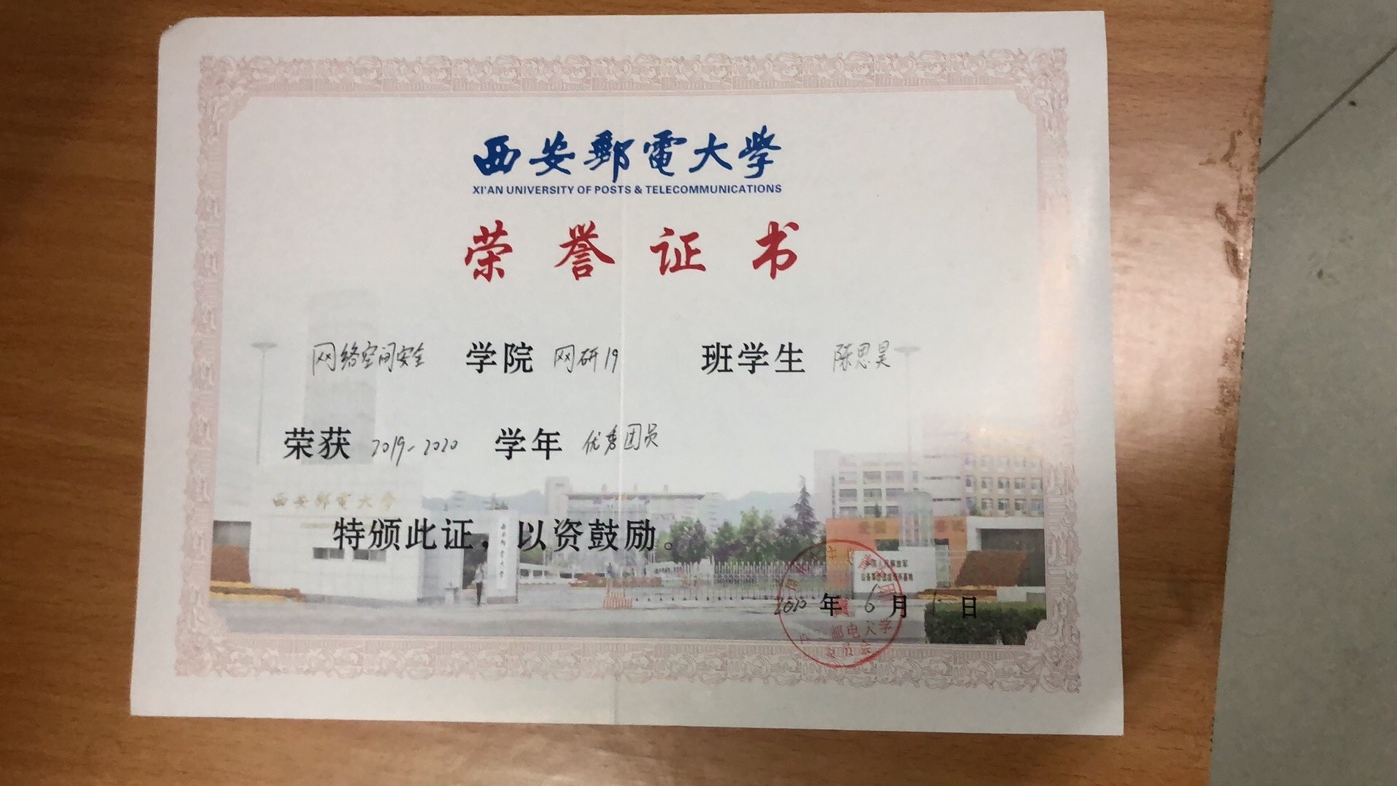 西安郵電大學
XI'AN UNIVERSITY OF POSTS & TELECOMMUNICATIONS
荣誉证书
网络空间安全 学院 网研19 班学生 陈思昊
荣获 2019-2020 学年 优秀团员
西安郵電大學
特颁此证，以资鼓励。
西安郵電大學
2020 年 6 月 日
邮电大学